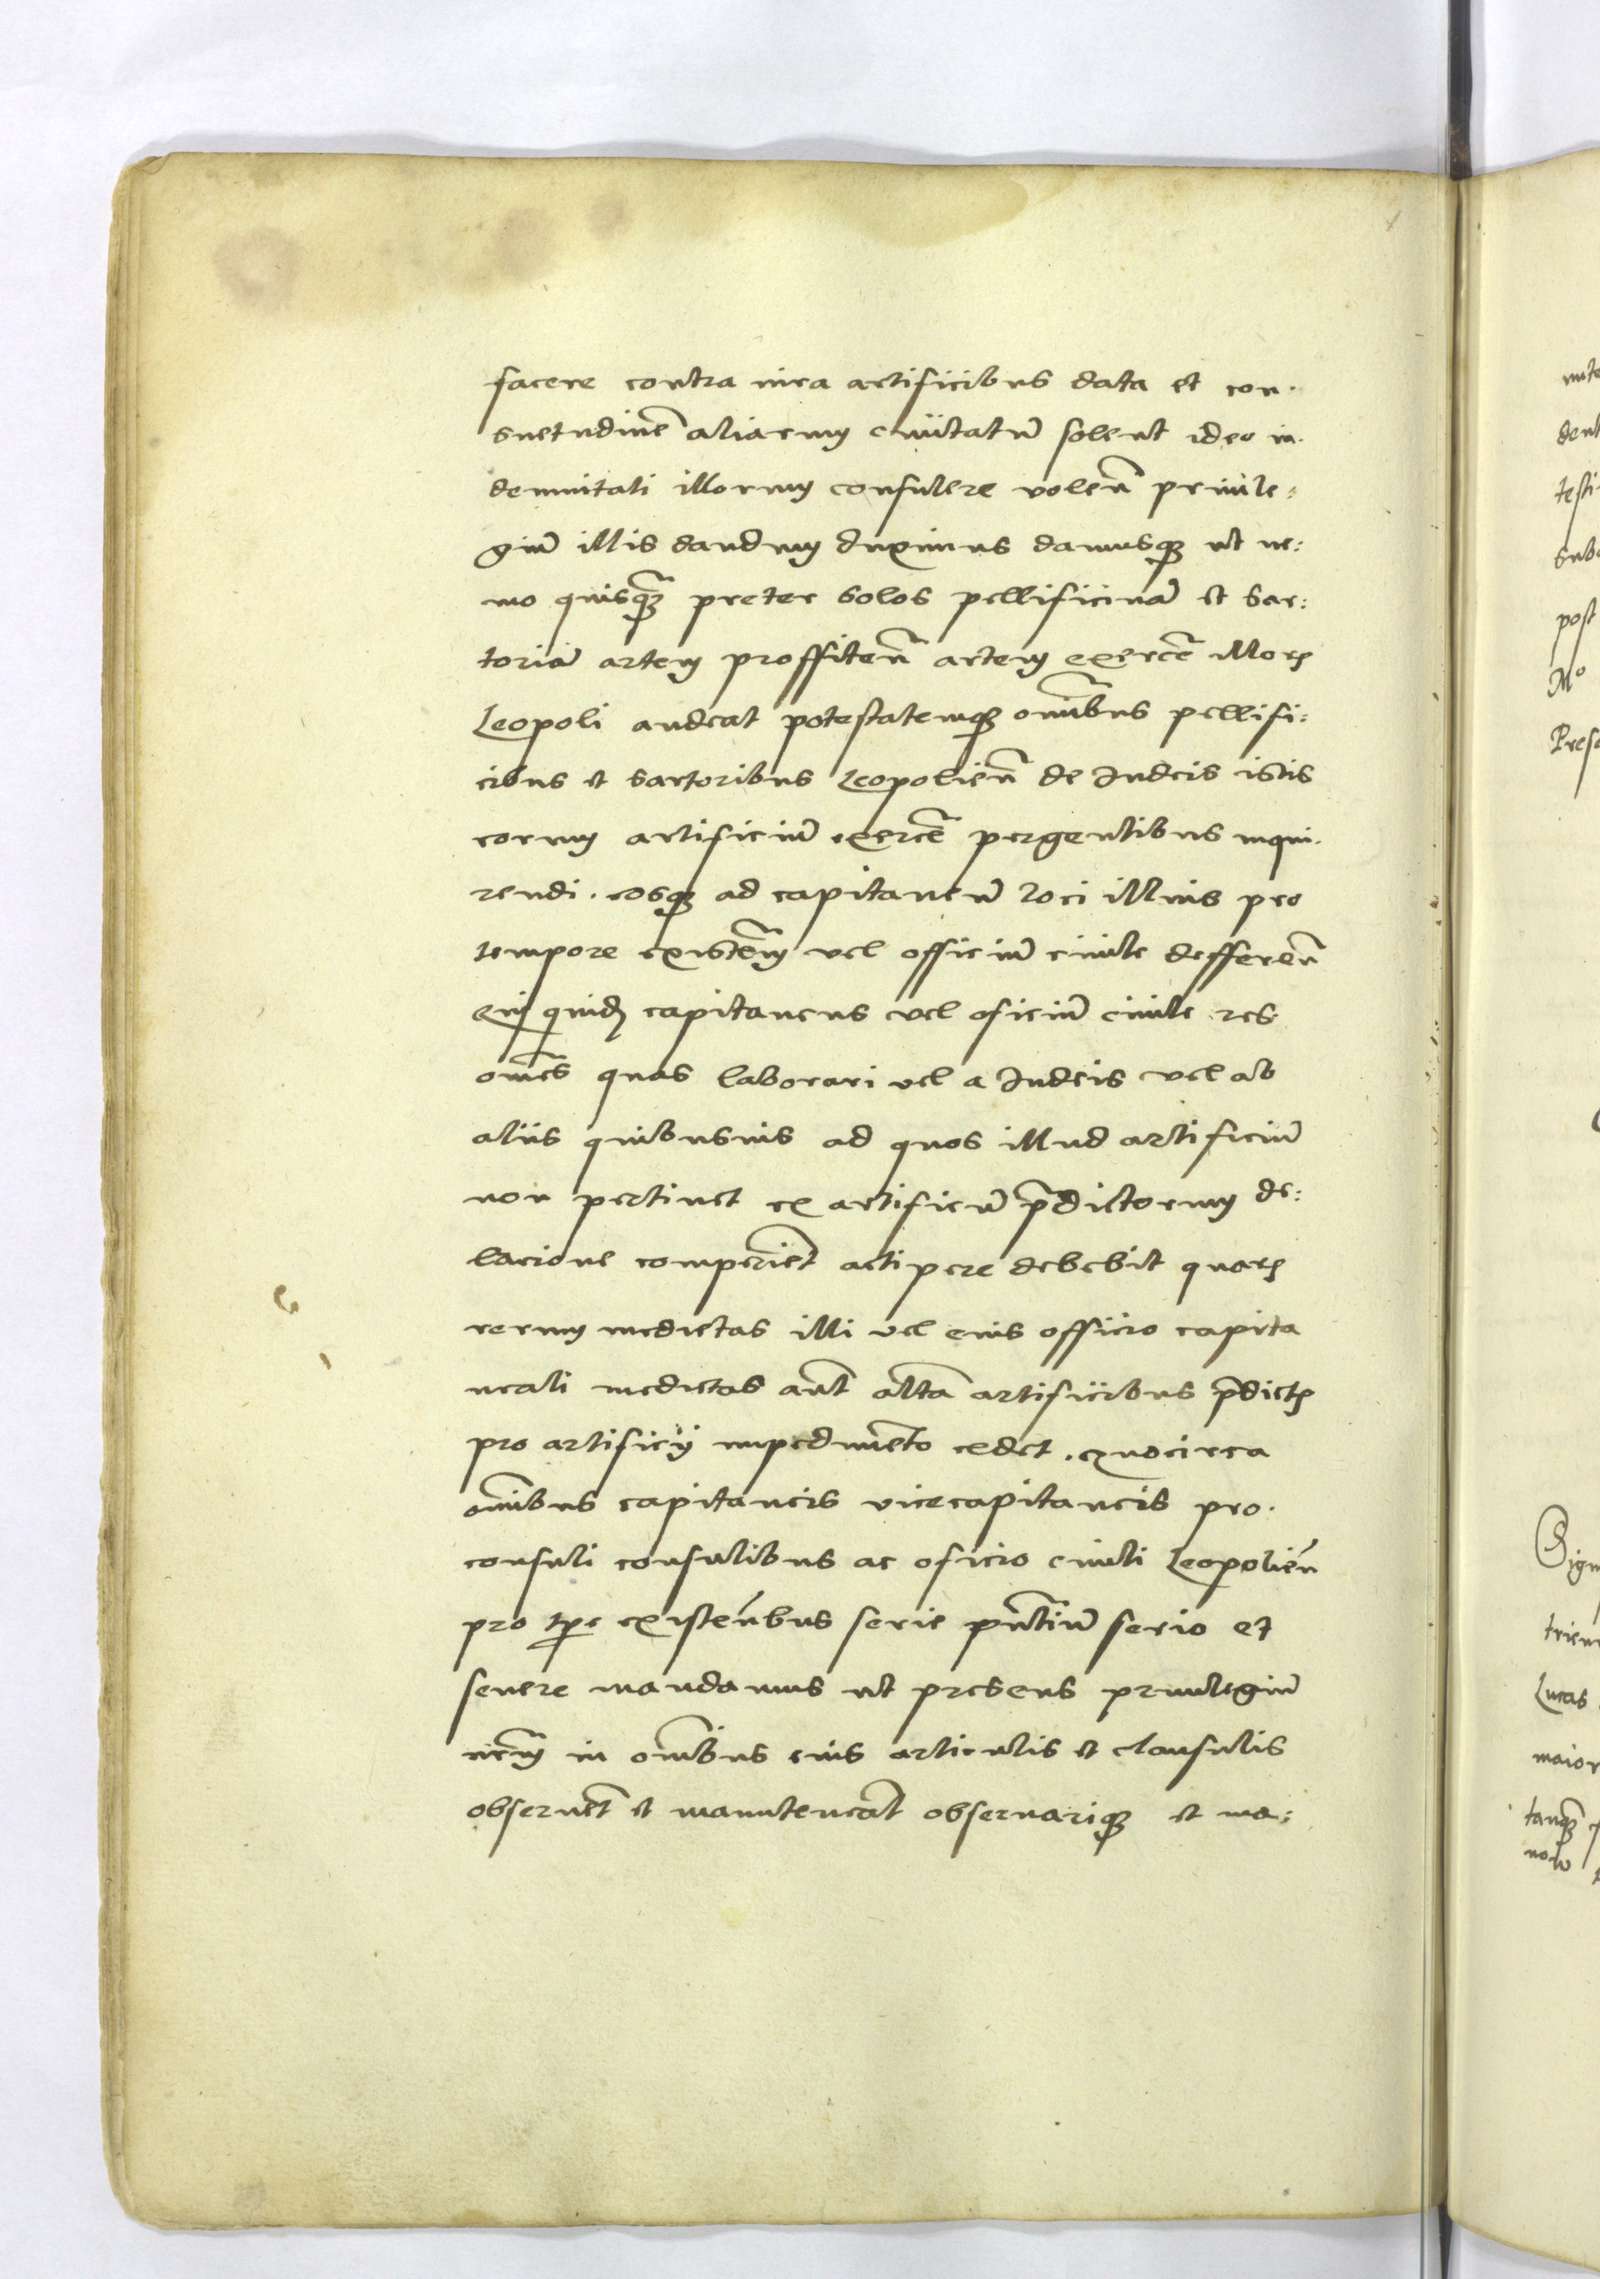 facere contra iura artificibus data et con-
suetudinē aliarum ciuitatū solent ideo in-
demnitati illorum consulere volen̄ priuile-
giū illis dandum duximus damusqȝ ut ne:
mo quisqȝ̄ preter solos pellificinā et sar:
toriā artem proffiten̄ artem exercē̄ illorꝝ
Leopoli audeat potestatemqȝ om̄ibus pellifi:
cibus et sartoribus Leopolien̄ de Iudeis istis
eorum artificiū exercē̄ pergentibus inqui-
rendi. eosqȝ ad capitaneū loci illius pro
tempore existēm vel officiū ciuile defferen̄
quidꝫ capitaneus vel oficiū ciuile res
om̄es quas laborari vel a Iudeis vel ab
aliis quibusuis ad quos illud artificiū
non pertinet ex artificū p̄dictorum de:
lacione comperiet̄ accipere debebit quarꝝ
rerum medietas illi vel eius officio capita
neali medietas aut̄ alt̄a artificibus p̄dictꝭ
pro artificij impedimēto cedet. Quocirca
om̄ibus capitaneis vicecapitaneis pro-
consuli consulibus ac oficio ciuili Leopolien̄
pro tp̄e existen̄bus serie pn̄tiū serio et
seuere mandamus ut presens priuilegiū
nr̄m in om̄ibus eius articulis et clausulis
obseruēt et manuteneāt obseruariqȝ et ma: